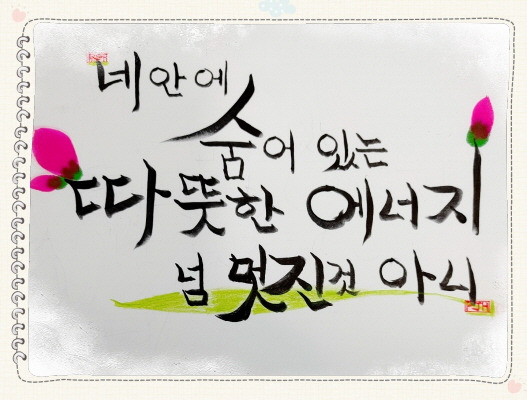 네 안에
숨어 있는
따뜻한 에너지
넘 멋진것 아니